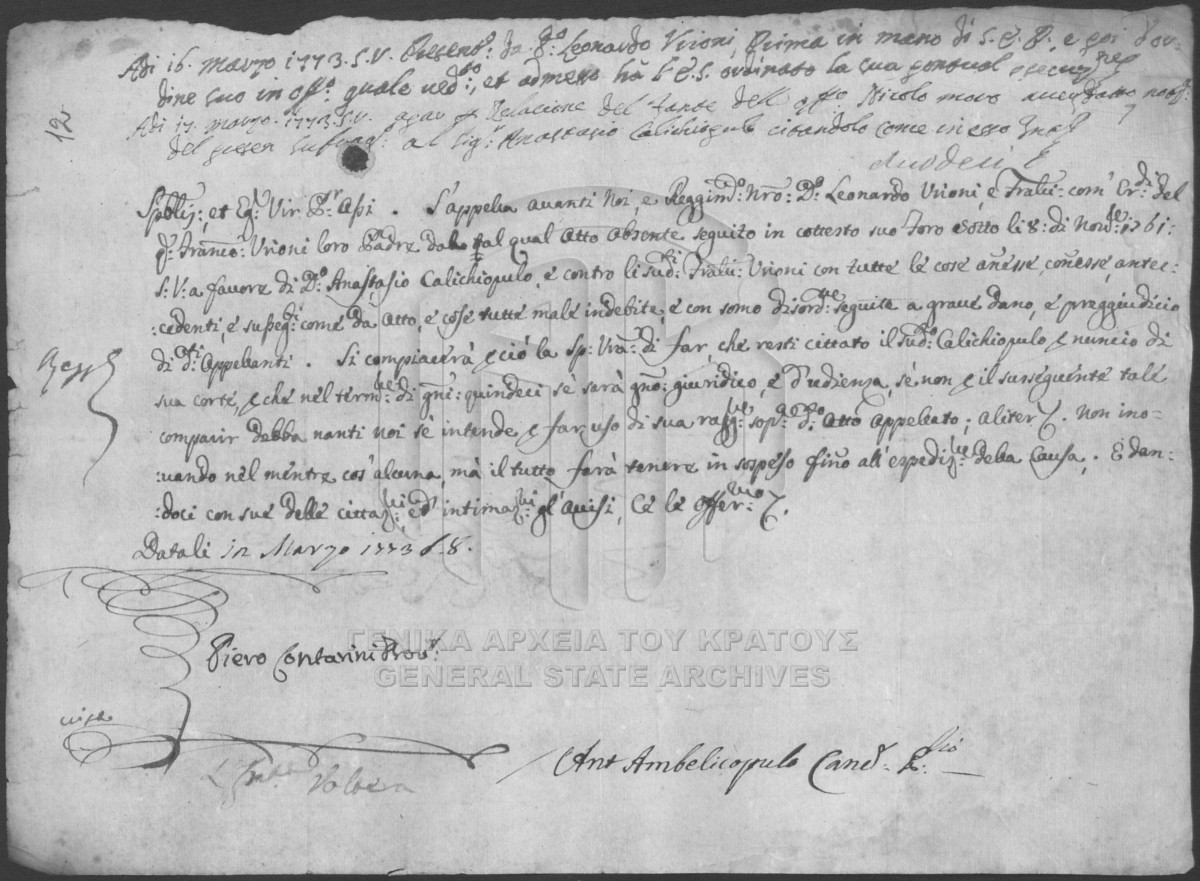 Adi 16. marzo 1773. S.V. Presen.to da D.o Leonardo Vrioni, Prima in mano di S.E.P. e poi d'or-
dine suo in off.o quale ved.to, et admesso hà S.E.S. ordinato la sua pontual
Adi 17. marzo. 1773. S.V. Relacione del fante dell off.o Nicolo moro
del presen al Sig.r Anastasio Calichiopulo citandolo come in esso
12
et Eg.o Vir. S'appella avanti Noi, e Reggim.to Nro: D.o Leonardo Vrioni, e Fratelli: com' Er.di del
q.m Franc.o Vrioni loro Padre dal qual Atto Absente seguito in cottesto suo Foro sotto li 8: di Nov.re 1761:
S.V. a favore di D.o Anastasio Calichiopulo, è contro li Sud.ti Fratelli: Vrioni con tutte le cose añesse, coñesse, antec-
:cedenti, è susseg.ti come da Atto, è cose tutte male indebite, è con somo disord.ne seguite a grave dano, è preggiudicio
di d.ti Appellanti. Si compiacerà p ciò la Sp: Vra: di far, che resti cittato il Sud.to Calichiopulo p nuncio di
sua corte, p che nel term.ne di gni: quindeci se sarà gno: giuridico, è d'udienza, se non p il susseguente tale
comparir debba nanti noi se intende p far uso di sua rag.ne sop.a d.o Atto Appellato; aliter &. Non ino-
:vando nel mentre cos' alcuna, mà il tutto farà tenere in sospeso fino all' espediz.ne della Causa. E dan-
:doci con sue delle cittaz.ni, ed intimaz.ni gl' Avisi, Ce le offer.mo &.
Data li 12 Marzo 1773 S.V.
Piero Contarini Prov.r
ΓΕΝΙΚΑ ΑΡΧΕΙΑ ΤΟΥ ΚΡΑΤΟΥΣ
GENERAL STATE ARCHIVES
Ant Ambelicopulo Canc.r